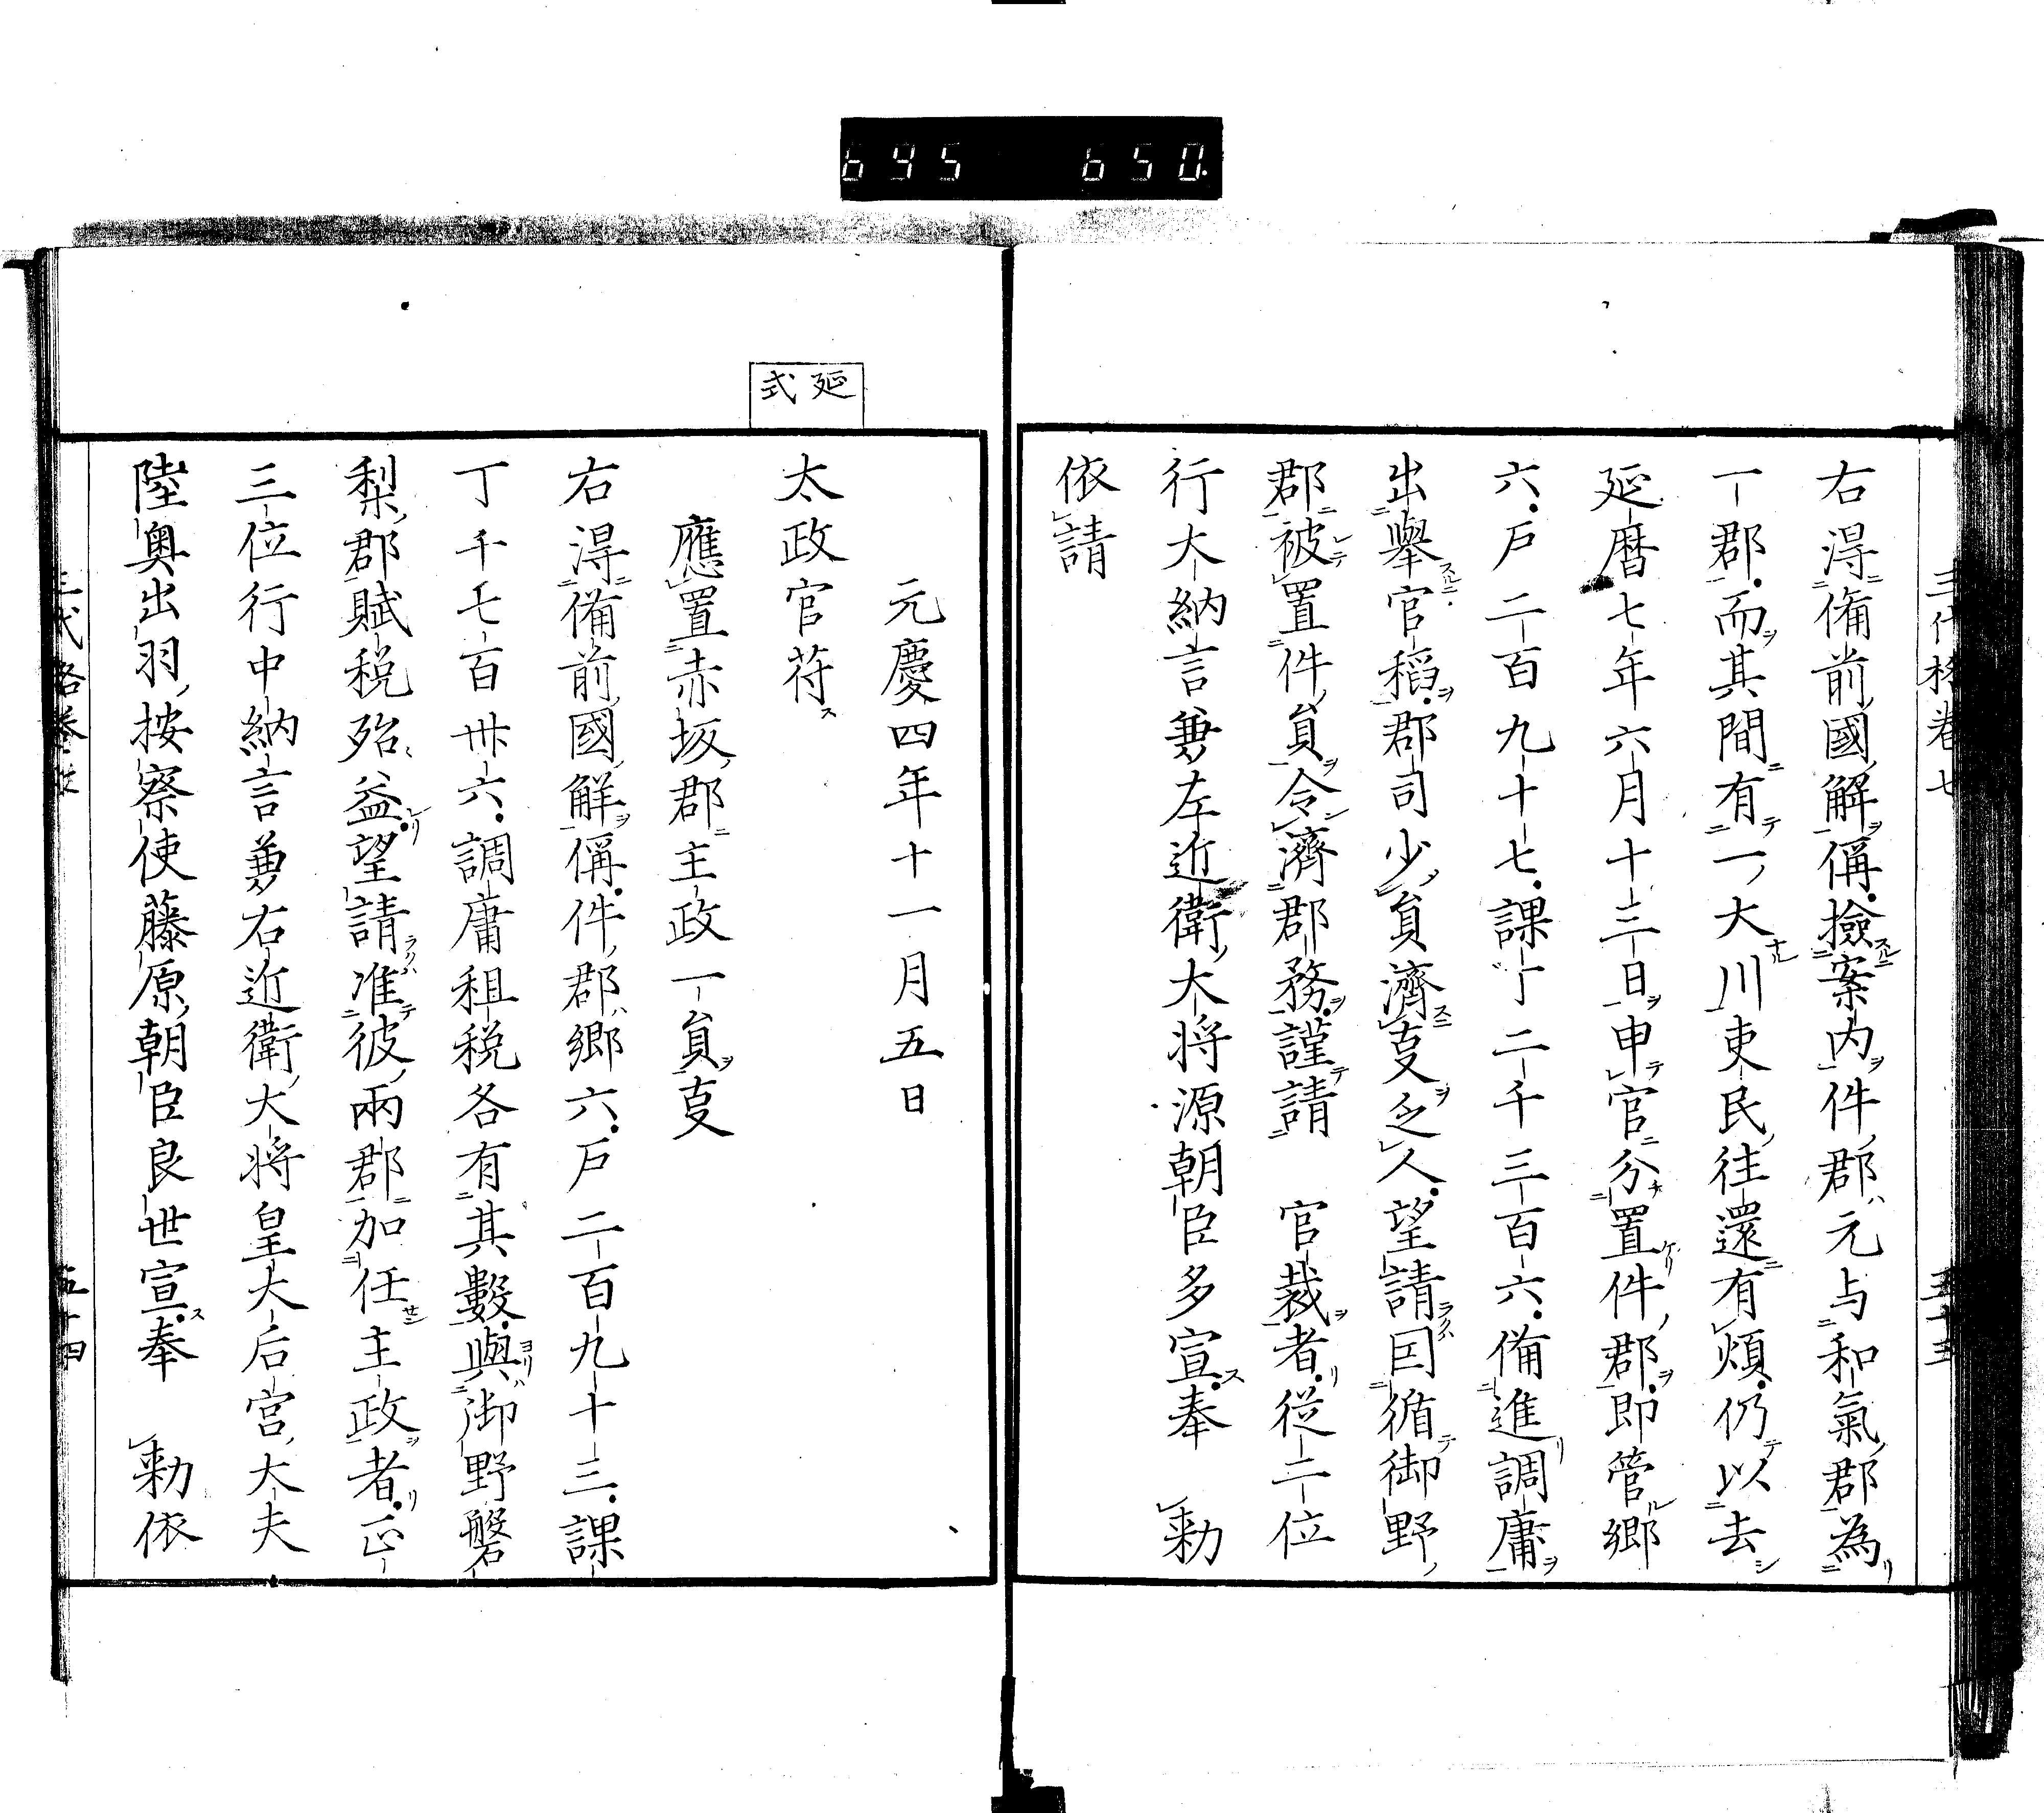 695 650.
三代格卷七 五十三
右淂俻前國解偁撿案内件郡元与和氣郡為
一郡而其間有一大川吏民往還有煩仍以去
延暦七年六月十三日申官分置件郡即管鄉
六戸二百九十七課丁二千三百六俻進調庸
出舉官稻郡司少貟濟㕝乏人望請囙循御野
郡被置件貟令濟郡務謹請 官裁者從二位
行大納言兼左近衛大将源朝臣多宣奉 勅
依請
元慶四年十一月五日
延式
太政官苻
應置赤坂郡主政一貟㕝
右淂俻前國解偁件郡鄉六戸二百九十三課
丁千七百卅六調庸租税各有其數與御野磐
梨郡賦税殆益望請准彼兩郡加任主政者正
三位行中納言兼右近衛大将皇太后宮大夫
陸奥出羽按察使藤原朝臣良世宣奉 勅依
三代格卷七 五十四